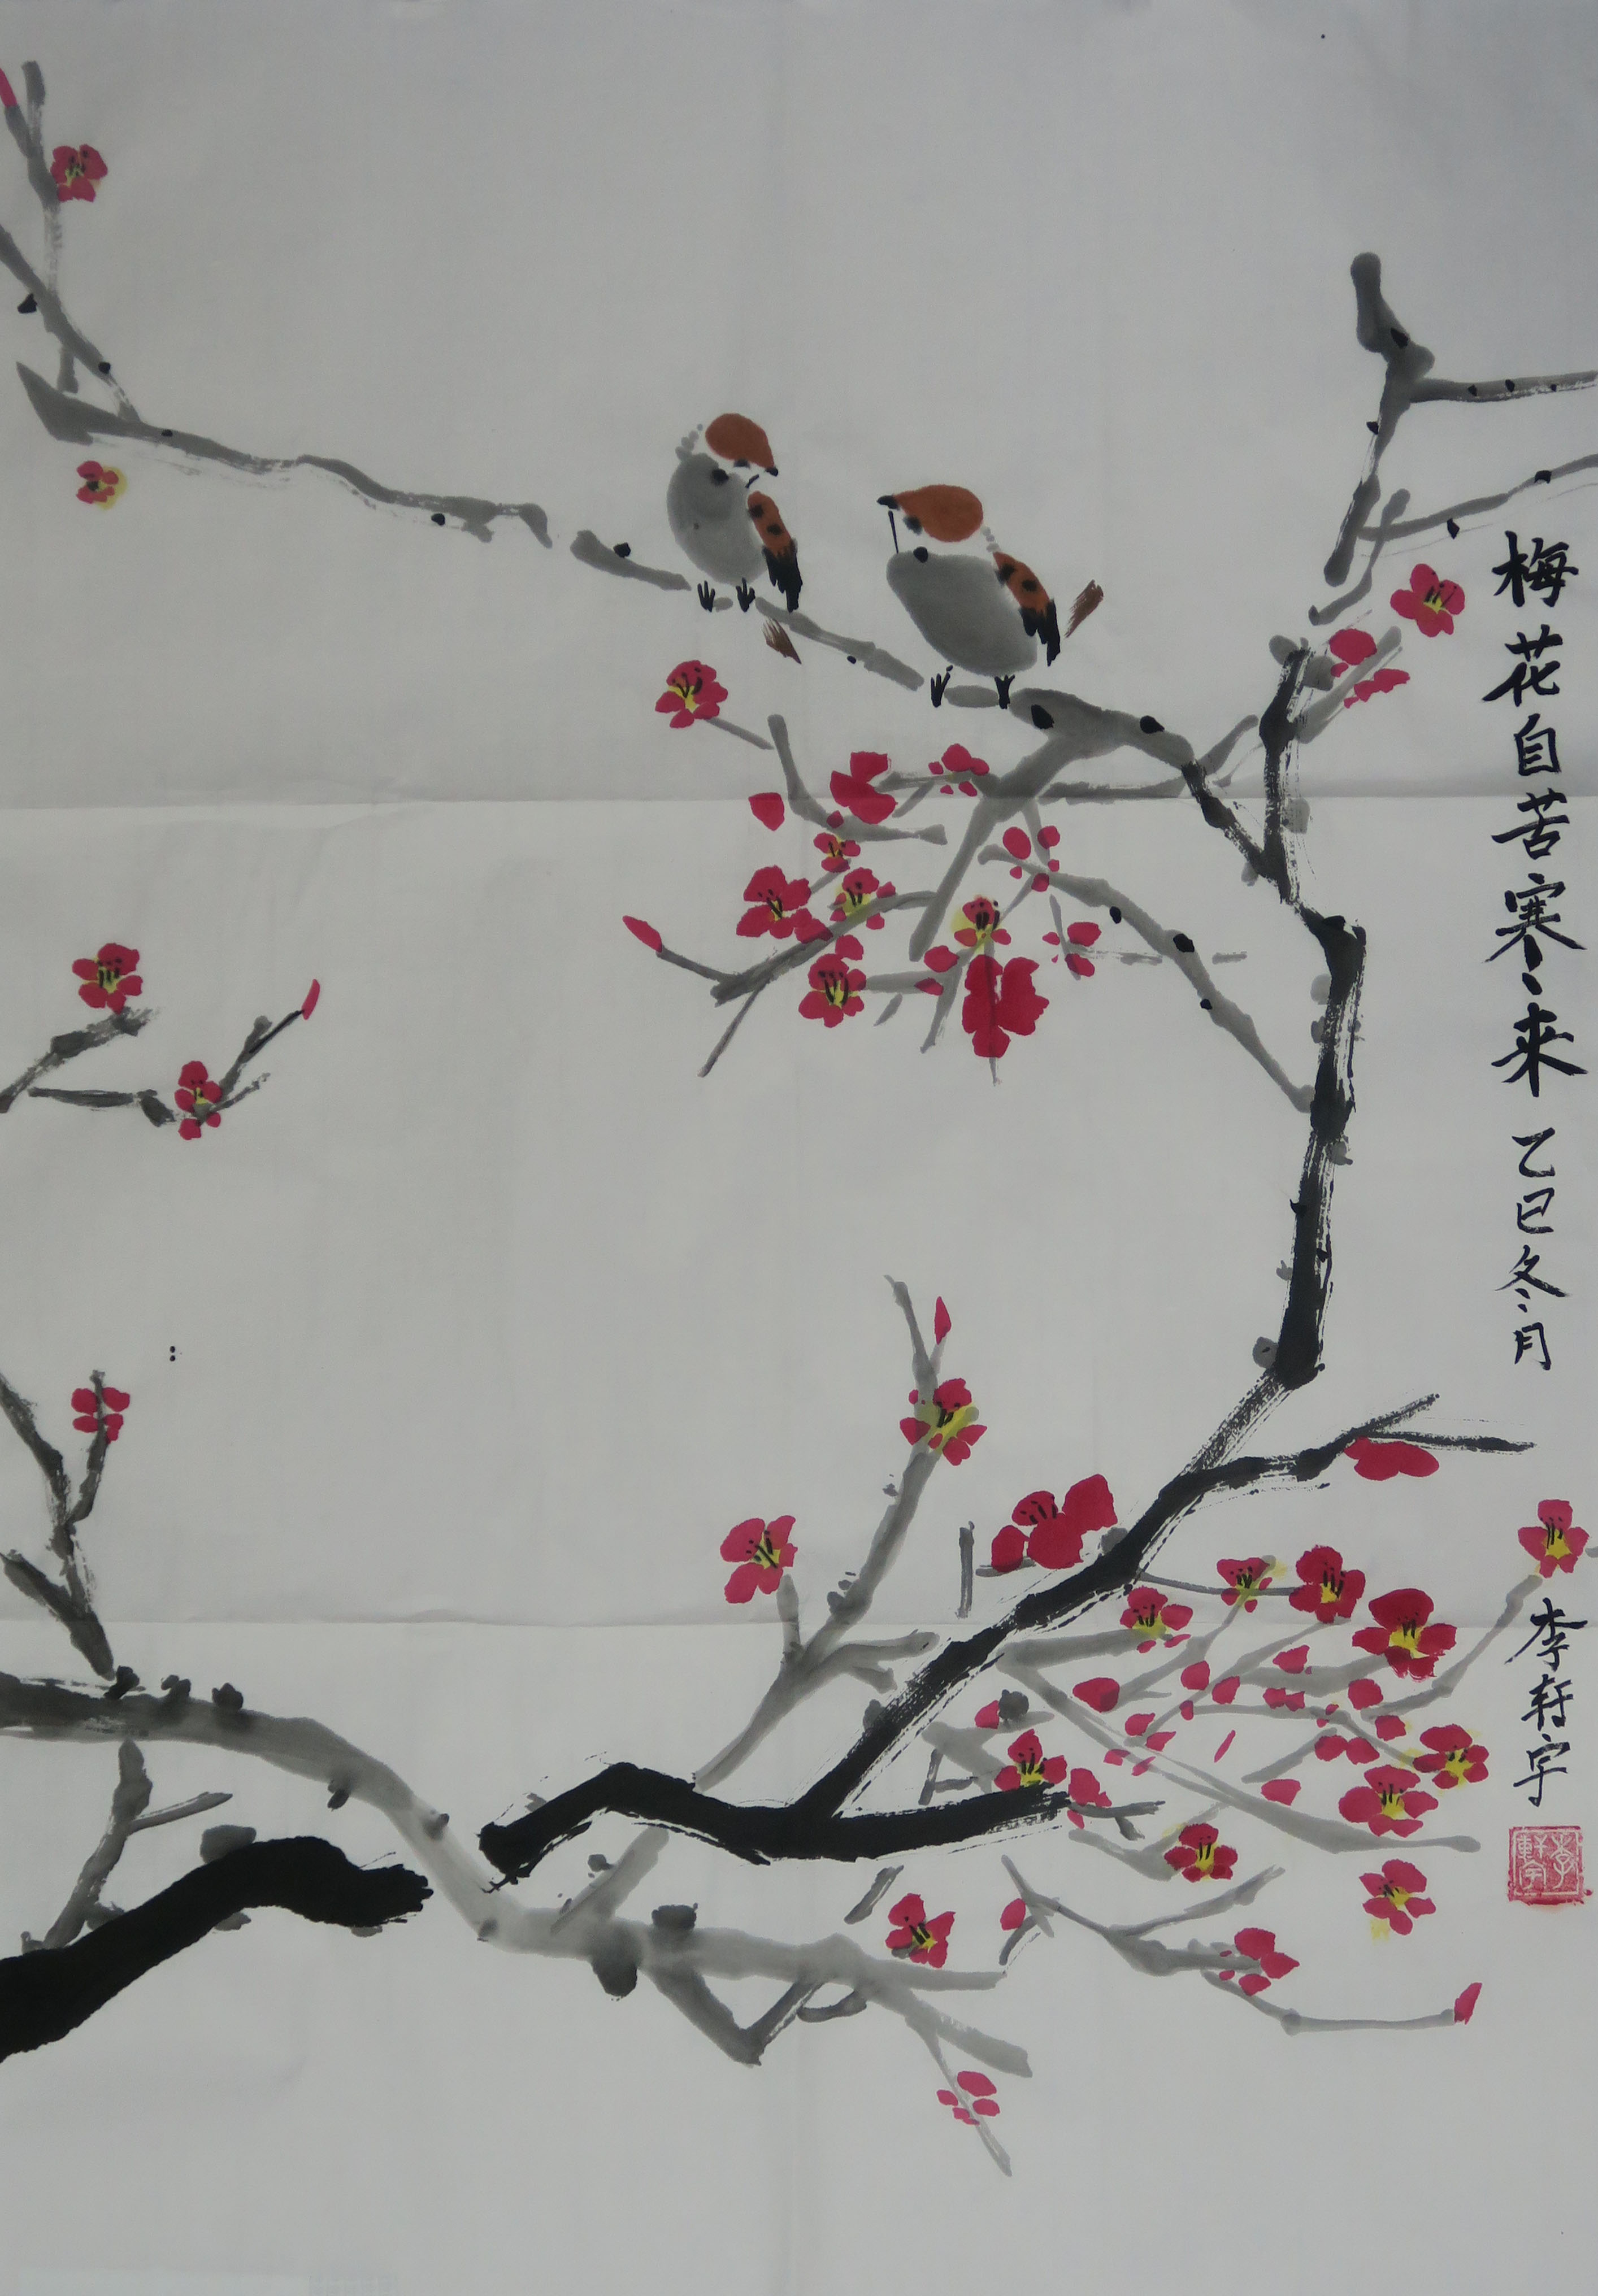 梅花自苦寒来 乙巳冬月
李轩宇
李軒宇